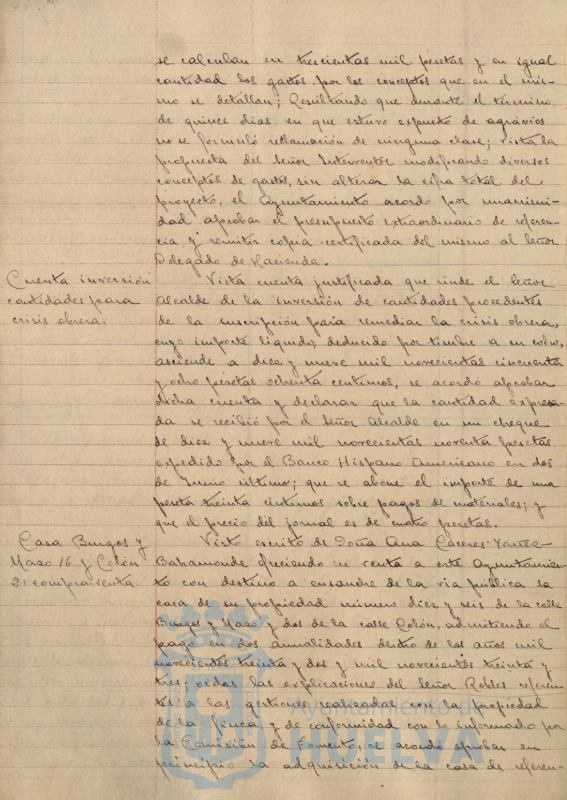 se calculan en trescientas mil pesetas y en igual
cantidad los gastos por los conceptos que en el mis-
mo se detallan; Resultando que durante el término
de quince dias en que estuvo expuesto de agravios
no se formuló reclamación de ninguna clase; vista la
propuesta del Señor Interventor modificando diversos
conceptos de gastos, sin alterar la cifra total del
proyecto, el Ayuntamiento acordó por unanimi-
dad aprobar el presupuesto extraordinario de referen-
cia y remitir copia certificada del mismo al Señor
Delegado de Hacienda.
Cuenta inversión
cantidades para
crisis obrera.
Vista cuenta justificada que rinde el Señor
Alcalde de la inversión de cantidades procedentes
de la suscripción para remediar la crisis obrera,
cuyo importe líquido, deducido por timbre a su cobro,
asciende a diez y nueve mil novecientas cincuenta
y ocho pesetas ochenta centimos, se acordó aprobar
dicha cuenta y declarar que la cantidad expresa-
da se recibió por el Señor Alcalde en un cheque
de diez y nueve mil novecientas noventa pesetas
expedido por el Banco Hispano Americano en dos
de Junio último; que se abone el importe de una
peseta treinta centimos sobre pagos de materiales; y
que el precio del jornal es de cuatro pesetas.
Casa Burgos y
Mazo 16 y Colón
2: compraventa.
Visto escrito de Doña Ana Cáceres Yañez
Bahamonde ofreciendo en venta a este Ayuntamien-
to con destino a ensanche de la via pública la
casa de su propiedad número diez y seis de la calle
Burgos y Mazo y dos de la calle Colón, admitiendo el
pago en dos anualidades dentro de los años mil
novecientos treinta y dos y mil novecientos treinta y
tres; oidas las explicaciones del Señor Robles referen-
tes a las gestiones realizadas con la propiedad
de la finca y de conformidad con lo informado por
la Comisión de Fomento, se acordó aprobar en
principio la adquisición de la casa de referen-
Ayuntamiento de
HUELVA